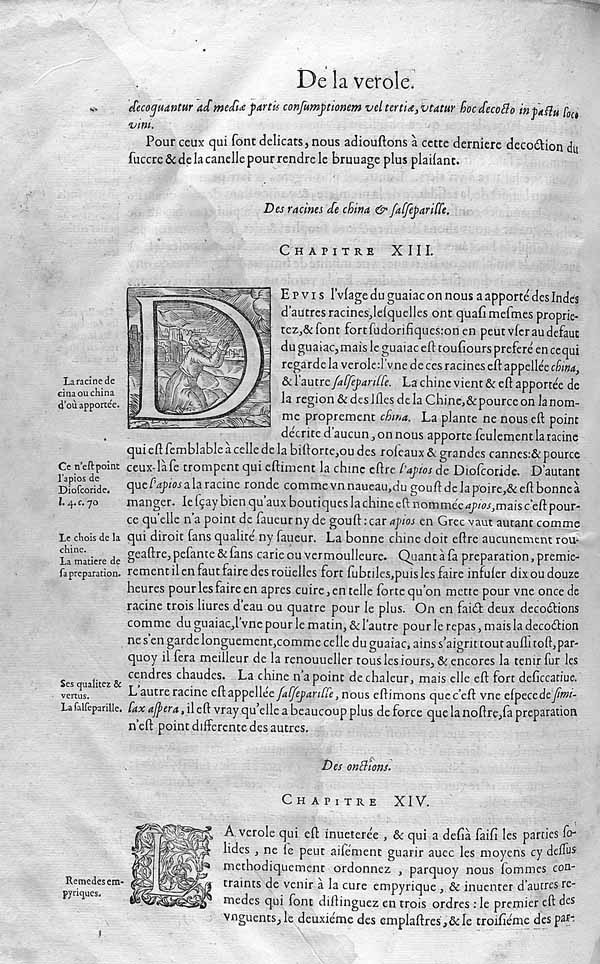 De la verole.
decoquantur ad mediæ partis conſumptionem vel tertiæ, vtatur hoc decocto in paſtu loco
vini.
Pour ceux qui ſont delicats, nous adiouſtons à cette derniere decoction du
ſuccre & de la canelle pour rendre le bruuage plus plaiſant.
Des racines de china & ſalſepariſſe.
CHAPITRE XIII.
DEPVIS l'vſage du guaiac on nous a apporté des Indes
d'autres racines, leſquelles ont quaſi meſmes proprie-
tez, & ſont fort ſudorifiques: on en peut vſer au defaut
du guaiac, mais le guaiac eſt touſiours preferé en ce qui
regarde la verole: l'vne de ces racines eſt appellée china,
& l'autre ſalſepariſſe. La chine vient & eſt apportée de
la region & des Iſles de la Chine, & pource on la nom-
me proprement china. La plante ne nous eſt point
décrite d'aucun, on nous apporte ſeulement la racine
qui eſt ſemblable à celle de la biſtorte, ou des roſeaux & grandes cannes: & pource
ceux-là ſe trompent qui eſtiment la chine eſtre l'apios de Dioſcoride. D'autant
que l'apios a la racine ronde comme vn naueau, du gouſt de la poire, & eſt bonne à
manger. Ie ſçay bien qu'aux boutiques la chine eſt nommée apios, mais c'eſt pour-
ce qu'elle n'a point de ſaueur ny de gouſt: car apios en Grec vaut autant comme
qui diroit ſans qualité ny ſaueur. La bonne chine doit eſtre aucunement rou-
geaſtre, peſante & ſans carie ou vermoulleure. Quant à ſa preparation, premie-
rement il en faut faire des roüelles fort ſubtiles, puis les faire infuſer dix ou douze
heures pour les faire en apres cuire, en telle ſorte qu'on mette pour vne once de
racine trois liures d'eau ou quatre pour le plus. On en faict deux decoctions
comme du guaiac, l'vne pour le matin, & l'autre pour le repas, mais la decoction
ne s'en garde longuement, comme celle du guaiac, ains s'aigrit tout auſſi toſt, par-
quoy il ſera meilleur de la renouueller tous les iours, & encores la tenir ſur les
cendres chaudes. La chine n'a point de chaleur, mais elle eſt fort deſiccatiue.
L'autre racine eſt appellée ſalſepariſſe, nous eſtimons que c'eſt vne eſpece de ſmi-
lax aſpera, il eſt vray qu'elle a beaucoup plus de force que la noſtre, ſa preparation
n'eſt point differente des autres.
La racine de
cina ou china
d'où apportée.
Ce n'eſt point
l'apios de
Dioſcoride.
l. 4. c. 70
Le chois de la
chine.
La matiere de
ſa preparation.
Ses qualitez &
vertus.
La ſalſeparille.
Des onctions.
CHAPITRE XIV.
LA verole qui eſt inueterée, & qui a deſià ſaiſi les parties ſo-
lides, ne ſe peut aiſément guarir auec les moyens cy deſſus
methodiquement ordonnez, parquoy nous ſommes con-
traints de venir à la cure empyrique, & inuenter d'autres re-
medes qui ſont diſtinguez en trois ordres: le premier eſt des
vnguents, le deuxiéme des emplaſtres, & le troiſiéme des par-
Remedes em-
pyriques.